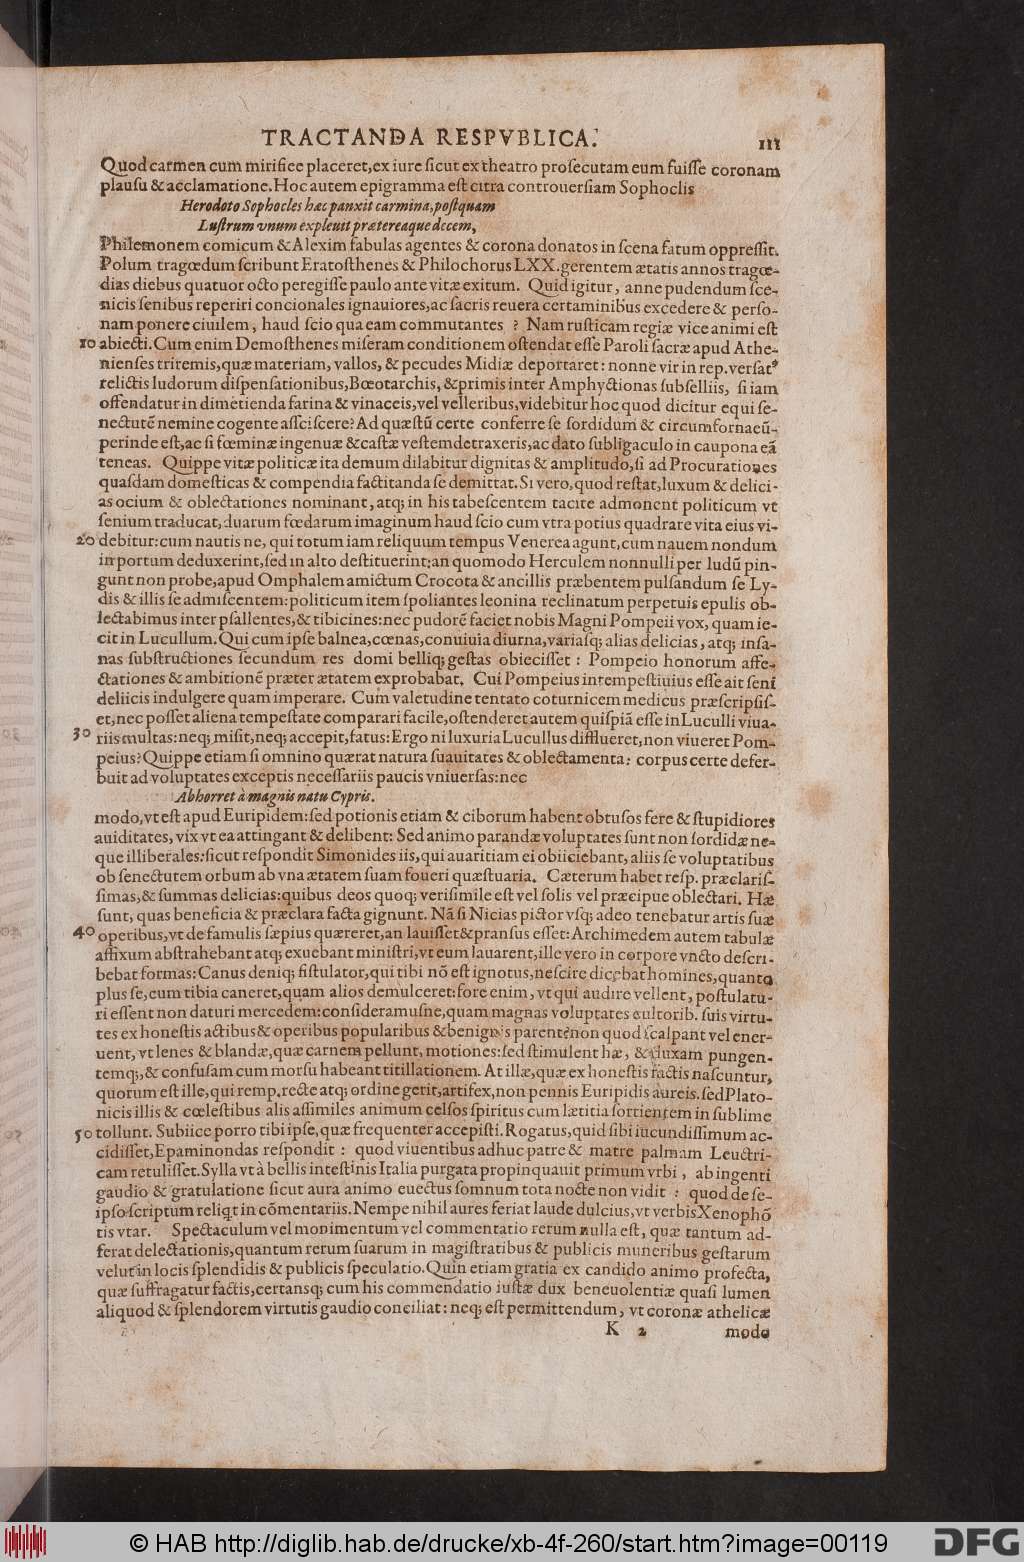 TRACTANDA RESPVBLICA. 111
Quod carmen cum mirifice placeret, ex iure sicut ex theatro prosecutam eum fuisse coronam
plausu & acclamatione. Hoc autem epigramma est citra controuersiam Sophoclis
Herodoto Sophocles hæc panxit carmina, postquam
Lustrum vnum expleuit prætereaque decem,
Philemonem comicum & Alexim fabulas agentes & corona donatos in scena fatum oppressit.
Polum tragœdum scribunt Eratosthenes & Philochorus LXX. gerentem ætatis annos tragœ-
dias diebus quatuor octo peregisse paulo ante vitæ exitum. Quid igitur, anne pudendum sce-
nicis senibus reperiri concionales ignauiores, ac sacris reuera certaminibus excedere & perso-
nam ponere ciuilem, haud scio qua eam commutantes ? Nam rusticam regiæ vice animi est
10 abiecti. Cum enim Demosthenes miseram conditionem ostendat esse Paroli sacræ apud Athe-
nienses triremis, quæ materiam, vallos, & pecudes Midiæ deportaret: nonne vir in rep. versatꝰ
relictis ludorum dispensationibus, Bœotarchis, & primis inter Amphyctionas subselliis, si iam
offendatur in dimetienda farina & vinaceis, vel velleribus, videbitur hoc quod dicitur equi se-
nectutẽ nemine cogente assciscere? Ad quæstũ certe conferre se sordidum & circumfornaeũ-
perinde est, ac si fœminæ ingenuæ & castæ vestem detraxeris, ac dato subligaculo in caupona eã
teneas. Quippe vitæ politicæ ita demum dilabitur dignitas & amplitudo, si ad Procurationes
quasdam domesticas & compendia factitanda se demittat. Si vero, quod restat, luxum & delici-
as ocium & oblectationes nominant, atq; in his tabescentem tacite admonent politicum vt
senium traducat, duarum fœdarum imaginum haud scio cum vtra potius quadrare vita eius vi-
20 debitur: cum nautis ne, qui totum iam reliquum tempus Venerea agunt, cum nauem nondum
in portum deduxerint, sed in alto destituerint: an quomodo Herculem nonnulli per ludũ pin-
gunt non probe, apud Omphalem amictum Crocota & ancillis præbentem pulsandum se Ly-
dis & illis se admiscentem: politicum item spoliantes leonina reclinatum perpetuis epulis ob-
lectabimus inter psallentes, & tibicines: nec pudorẽ faciet nobis Magni Pompeii vox, quam ie-
cit in Lucullum. Qui cum ipse balnea, cœnas, conuiuia diurna, variasq; alias delicias, atq; insa-
nas substructiones secundum res domi belliq; gestas obiecisset : Pompeio honorum affe-
ctationes & ambitionẽ præter ætatem exprobabat. Cui Pompeius intempestiuius esse ait seni
deliicis indulgere quam imperare. Cum valetudine tentato coturnicem medicus præscripsis-
et, nec posset aliena tempestate comparari facile, ostenderet autem quispiã esse in Luculli viua-
30 riis multas: neq; misit, neq; accepit, fatus: Ergo ni luxuria Lucullus difflueret, non viueret Pom-
peius? Quippe etiam si omnino quærat natura suauitates & oblectamenta: corpus certe defer-
buit ad voluptates exceptis necessariis paucis vniuersas: nec
Abhorret à magnis natu Cypris.
modo, vt est apud Euripidem: sed potionis etiam & ciborum habent obtusos fere & stupidiores
auiditates, vix vt ea attingant & delibent: Sed animo parandæ voluptates sunt non sordidæ ne-
que illiberales: sicut respondit Simonides iis, qui auaritiam ei obiiciebant, aliis se voluptatibus
ob senectutem orbum ab vna ætatem suam foueri quæstuaria. Cæterum habet resp. præclaris-
simas, & summas delicias: quibus deos quoq; verisimile est vel solis vel præcipue oblectari. Hæ
sunt, quas beneficia & præclara facta gignunt. Nã si Nicias pictor vsq; adeo tenebatur artis suæ
40 operibus, vt de famulis sæpius quæreret, an lauisset & pransus esset: Archimedem autem tabulæ
affixum abstrahebant atq; exuebant ministri, vt eum lauarent, ille vero in corpore vncto descri-
bebat formas: Canus deniq; fistulator, qui tibi nõ est ignotus, nescire dicebat homines, quanto
plus se, cum tibia caneret, quam alios demulceret: fore enim, vt qui audire vellent, postulatu-
ri essent non daturi mercedem: consideramusne, quam magnas voluptates cultorib. suis virtu-
tes ex honestis actibus & operibus popularibus & benignis parent? non quod scalpant vel ener-
uent, vt lenes & blandæ, quæ carnem pellunt, motiones: sed stimulent hæ, & fluxam pungen-
temq;, & confusam cum morsu habeant titillationem. At illæ, quæ ex honestis factis nascuntur,
quorum est ille, qui remp. recte atq; ordine gerit, artifex, non pennis Euripidis aureis. sed Plato-
nicis illis & cœlestibus alis assimiles animum celsos spiritus cum lætitia sortientem in sublime
50 tollunt. Subiice porro tibi ipse, quæ frequenter accepisti. Rogatus, quid sibi iucundissimum ac-
cidisset, Epaminondas respondit : quod viuentibus adhuc patre & matre palmam Leuctri-
cam retulisset. Sylla vt à bellis intestinis Italia purgata propinquauit primum vrbi, ab ingenti
gaudio & gratulatione sicut aura animo euectus somnum tota nocte non vidit : quod de se-
ipso scriptum reliqt in cõmentariis. Nempe nihil aures feriat laude dulcius, vt verbis Xenophõ
tis vtar. Spectaculum vel monimentum vel commentatio rerum nulla est, quæ tantum ad-
ferat delectationis, quantum rerum suarum in magistratibus & publicis muneribus gestarum
velut in locis splendidis & publicis speculatio. Quin etiam gratia ex candido animo profecta,
quæ suffragatur factis, certansq; cum his commendatio iustæ dux beneuolentiæ quasi lumen
aliquod & splendorem virtutis gaudio conciliat: neq; est permittendum, vt coronæ athelicæ
K 2 modo
© HAB http://diglib.hab.de/drucke/xb-4f-260/start.htm?image=00119
DFG